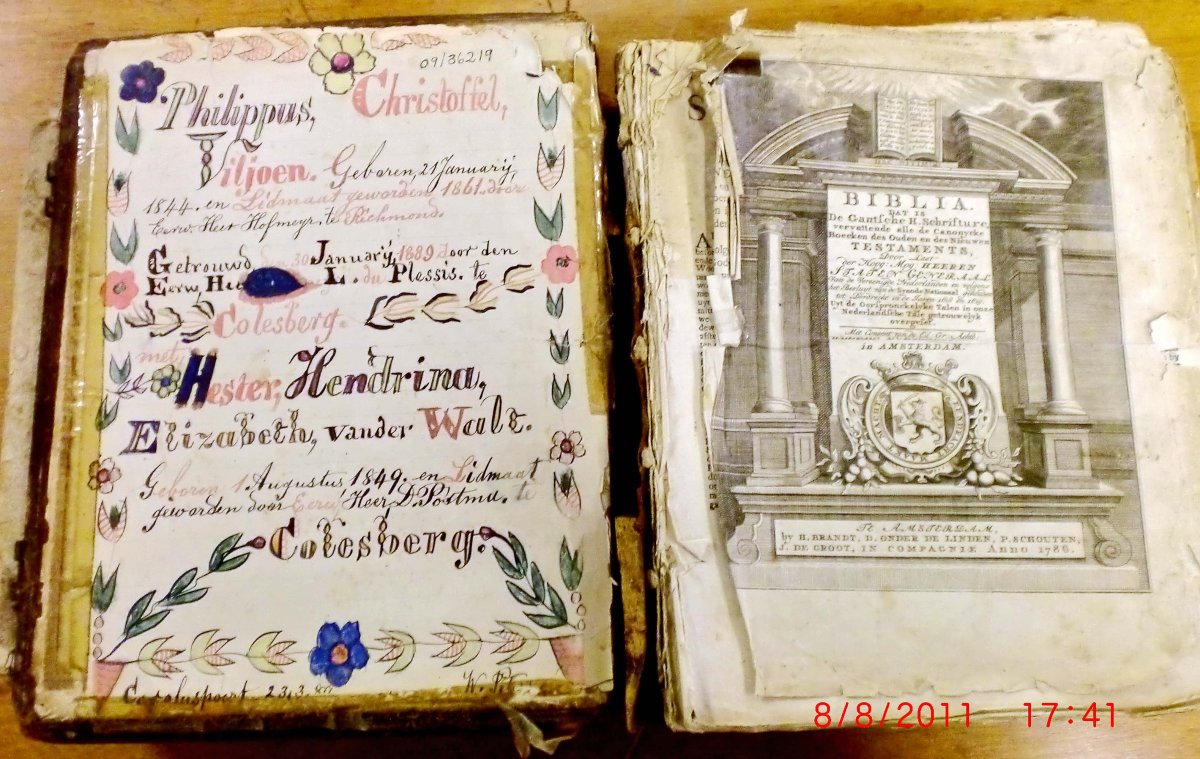 09/36219
Philippus, Christoffel,
Viljoen. Geboren, 21 Januarij
1844. en Lidmaat geworden 1861. door
Eerw. Heer Hofmeyr. te Richmond.
Getrouwd 30 Januarij 1889 door den
Eerw, L. du Plessis. te
Colesberg.
met
Hester, Hendrina,
Elizabeth, vander Walt.
Geboren 1 Augustus 1849. en Lidmaat
geworden door Eerw Heer D. Postma. te
Colesberg.
BIBLIA.
DAT IS
De Gantsche H. Schrifture,
vervattende alle de Canonycke
Boecken des Ouden en des Nieuwen
TESTAMENTS,
Door Last
der Hoog-Mog: HEEREN
STATEN GENERAAL
Van de Vereenigde Nederlanden en volgens
het Besluit van de Synode Nationaal gehouden
tot Dordrecht in de Jaren 1618 en 1619
Uyt de Oorspronckelyke Talen in onze
Nederlandsche Tale getrouwelyk
overgeset.
in AMSTERDAM.
Te AMSTERDAM,
by H. BRANDT, D. ONDER DE LINDEN, P. SCHOUTEN,
J. DE GROOT, IN COMPAGNIE Anno 1786.
8/8/2011 17:41